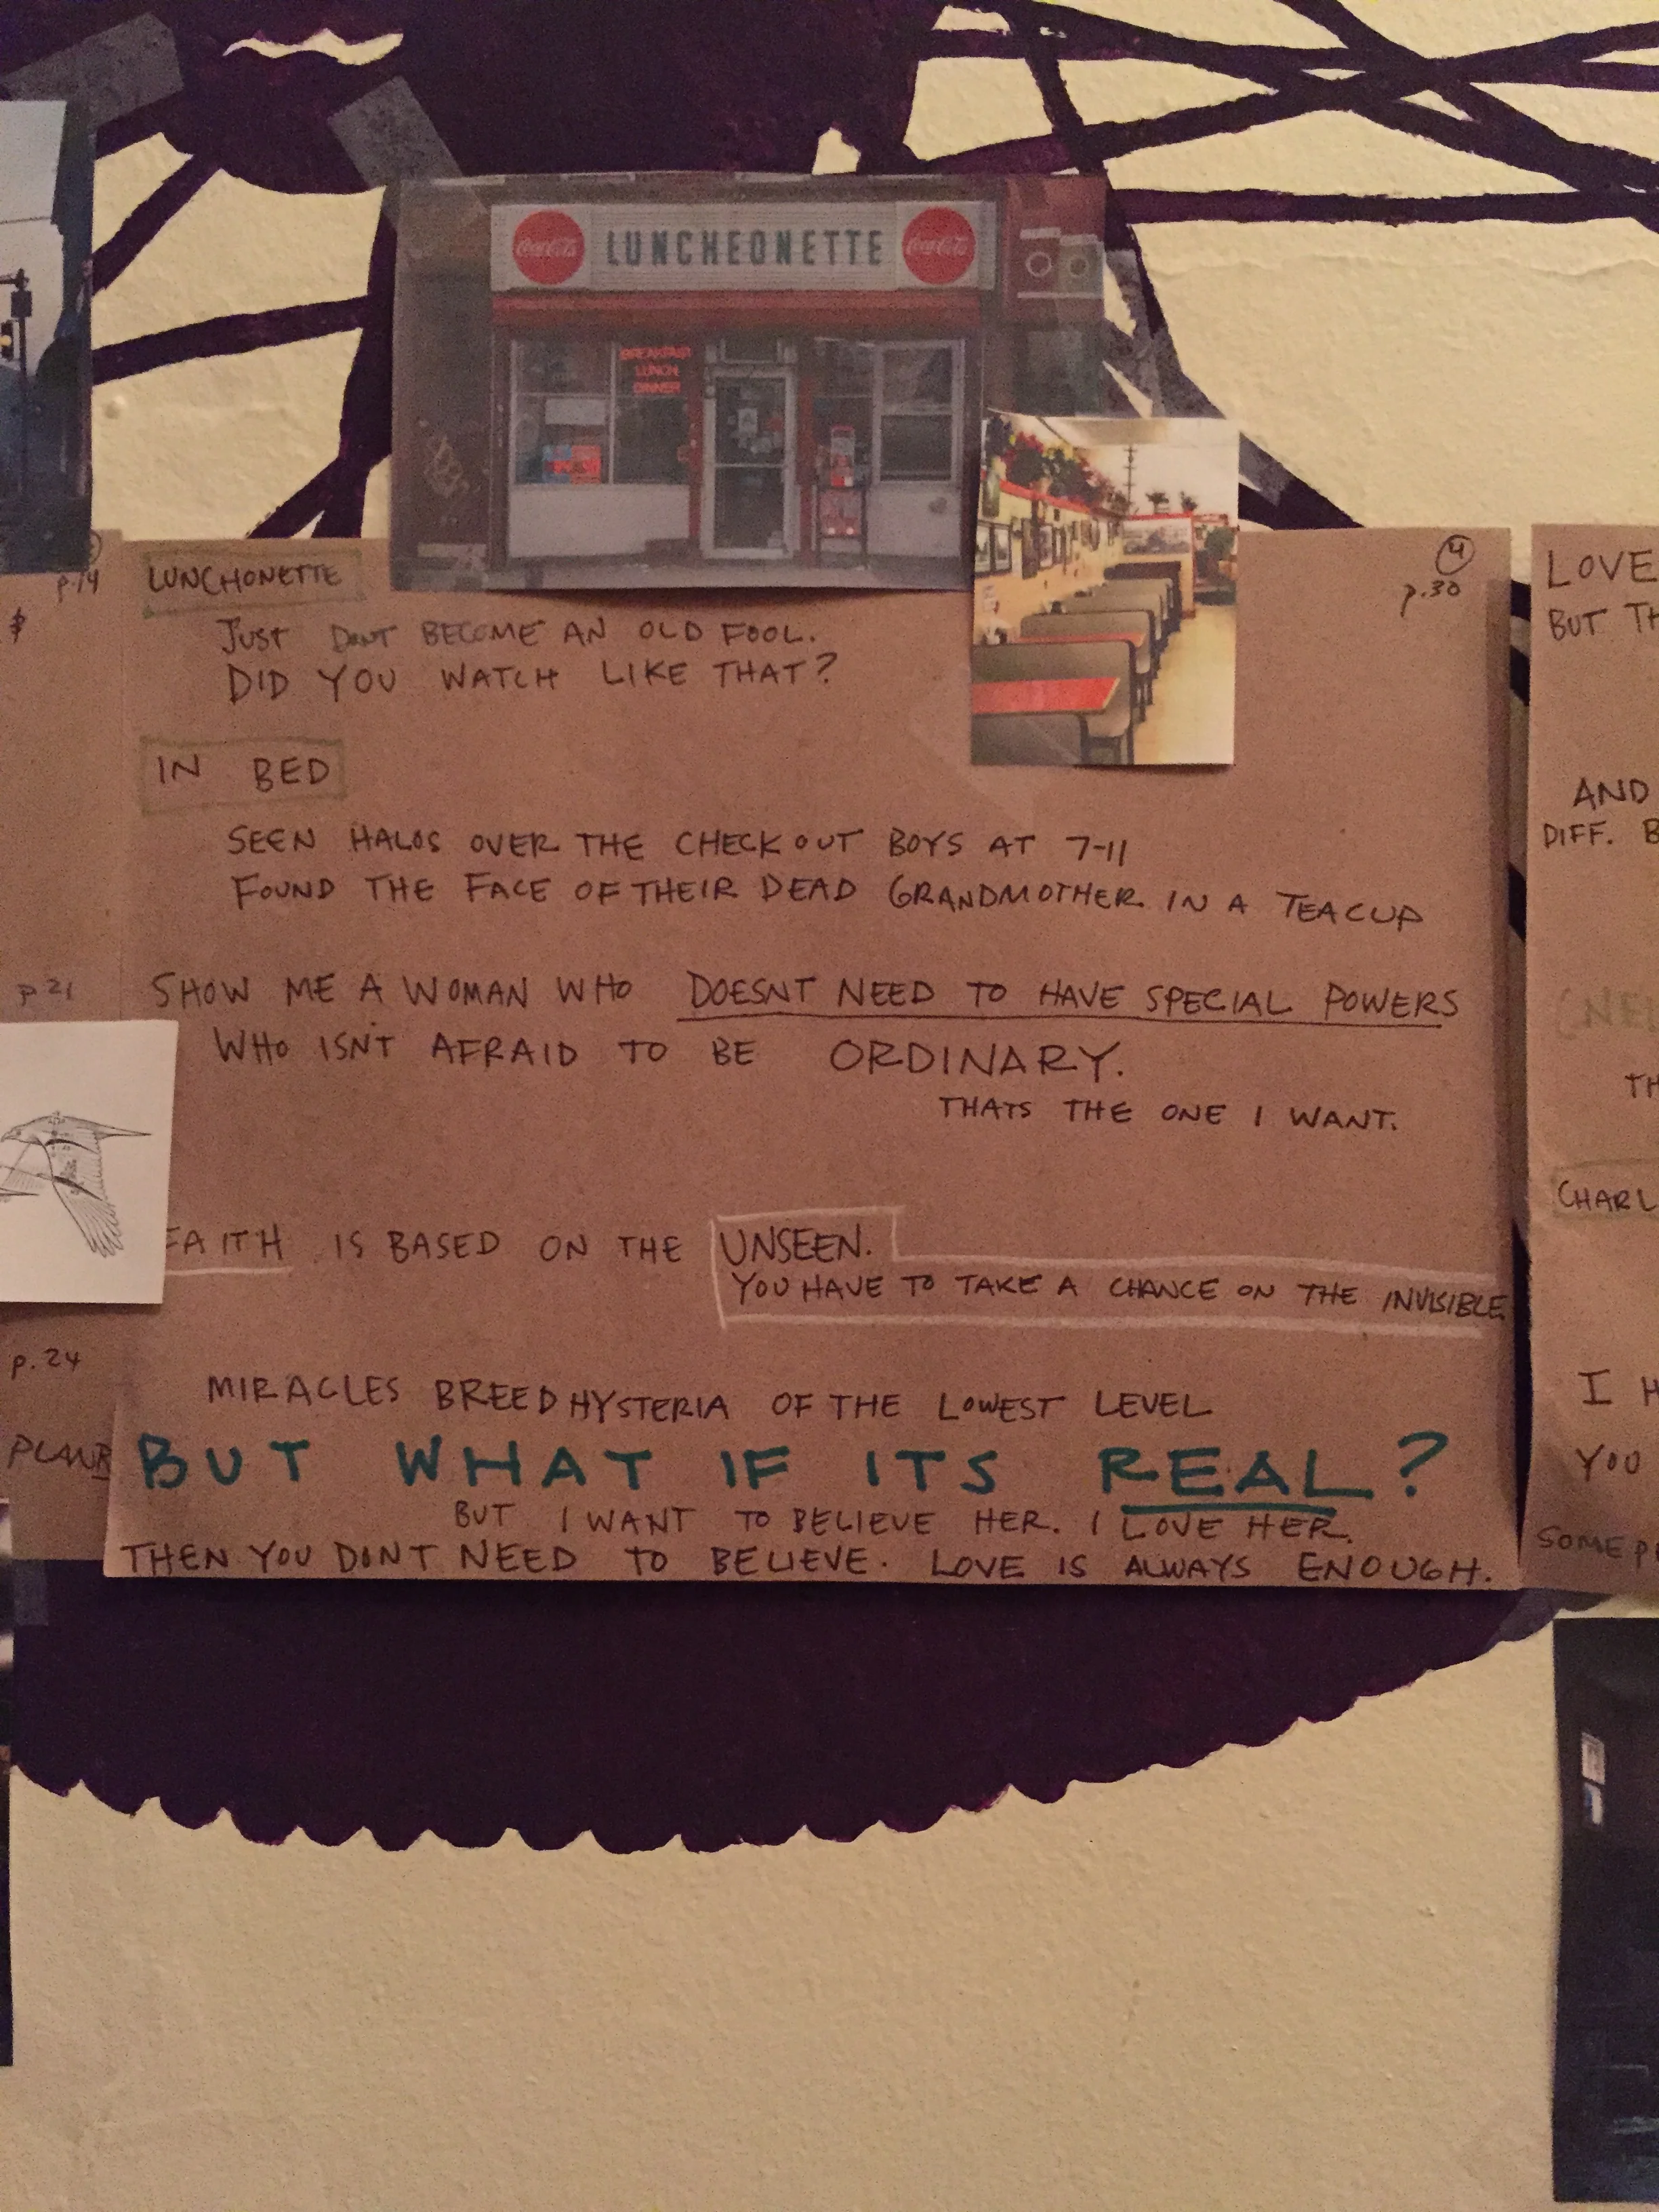 Coca-Cola LUNCHEONETTE Coca-Cola
BREAKFAST
LUNCH
DINNER
p.14
LUNCHONETTE
4
p.30
JUST DONT BECOME AN OLD FOOL.
DID YOU WATCH LIKE THAT?
IN BED
SEEN HALOS OVER THE CHECKOUT BOYS AT 7-11
FOUND THE FACE OF THEIR DEAD GRANDMOTHER IN A TEACUP
p 21
SHOW ME A WOMAN WHO DOESNT NEED TO HAVE SPECIAL POWERS
WHO ISN'T AFRAID TO BE ORDINARY.
THATS THE ONE I WANT.
FAITH IS BASED ON THE UNSEEN.
YOU HAVE TO TAKE A CHANCE ON THE INVISIBLE
p.24
MIRACLES BREED HYSTERIA OF THE LOWEST LEVEL
BUT WHAT IF ITS REAL?
BUT I WANT TO BELIEVE HER. I LOVE HER.
THEN YOU DONT NEED TO BELIEVE. LOVE IS ALWAYS ENOUGH.
LOVE
BUT TH
AND
DIFF. B
TH
CHARL
I H
YOU
SOME